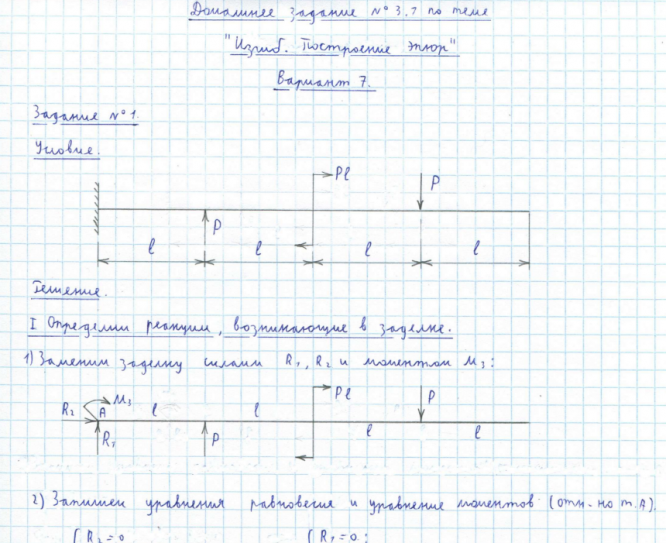 Домашнее задание № 3.1 по теме
"Изгиб. Построение эпюр"
Вариант 7.
Задание № 1.
Условие.
Pl
P
P
l l l l
Решение.
I Определим реакции, возникающие в заделке.
1) Заменим заделку силами R₁, R₂ и моментом M₃:
Pl P
R₂ A M₃ l l
R₁ P l l
2) Запишем уравнения равновесия и уравнение моментов (отн-но т.A).
{ R₂=0 { R₂=0;